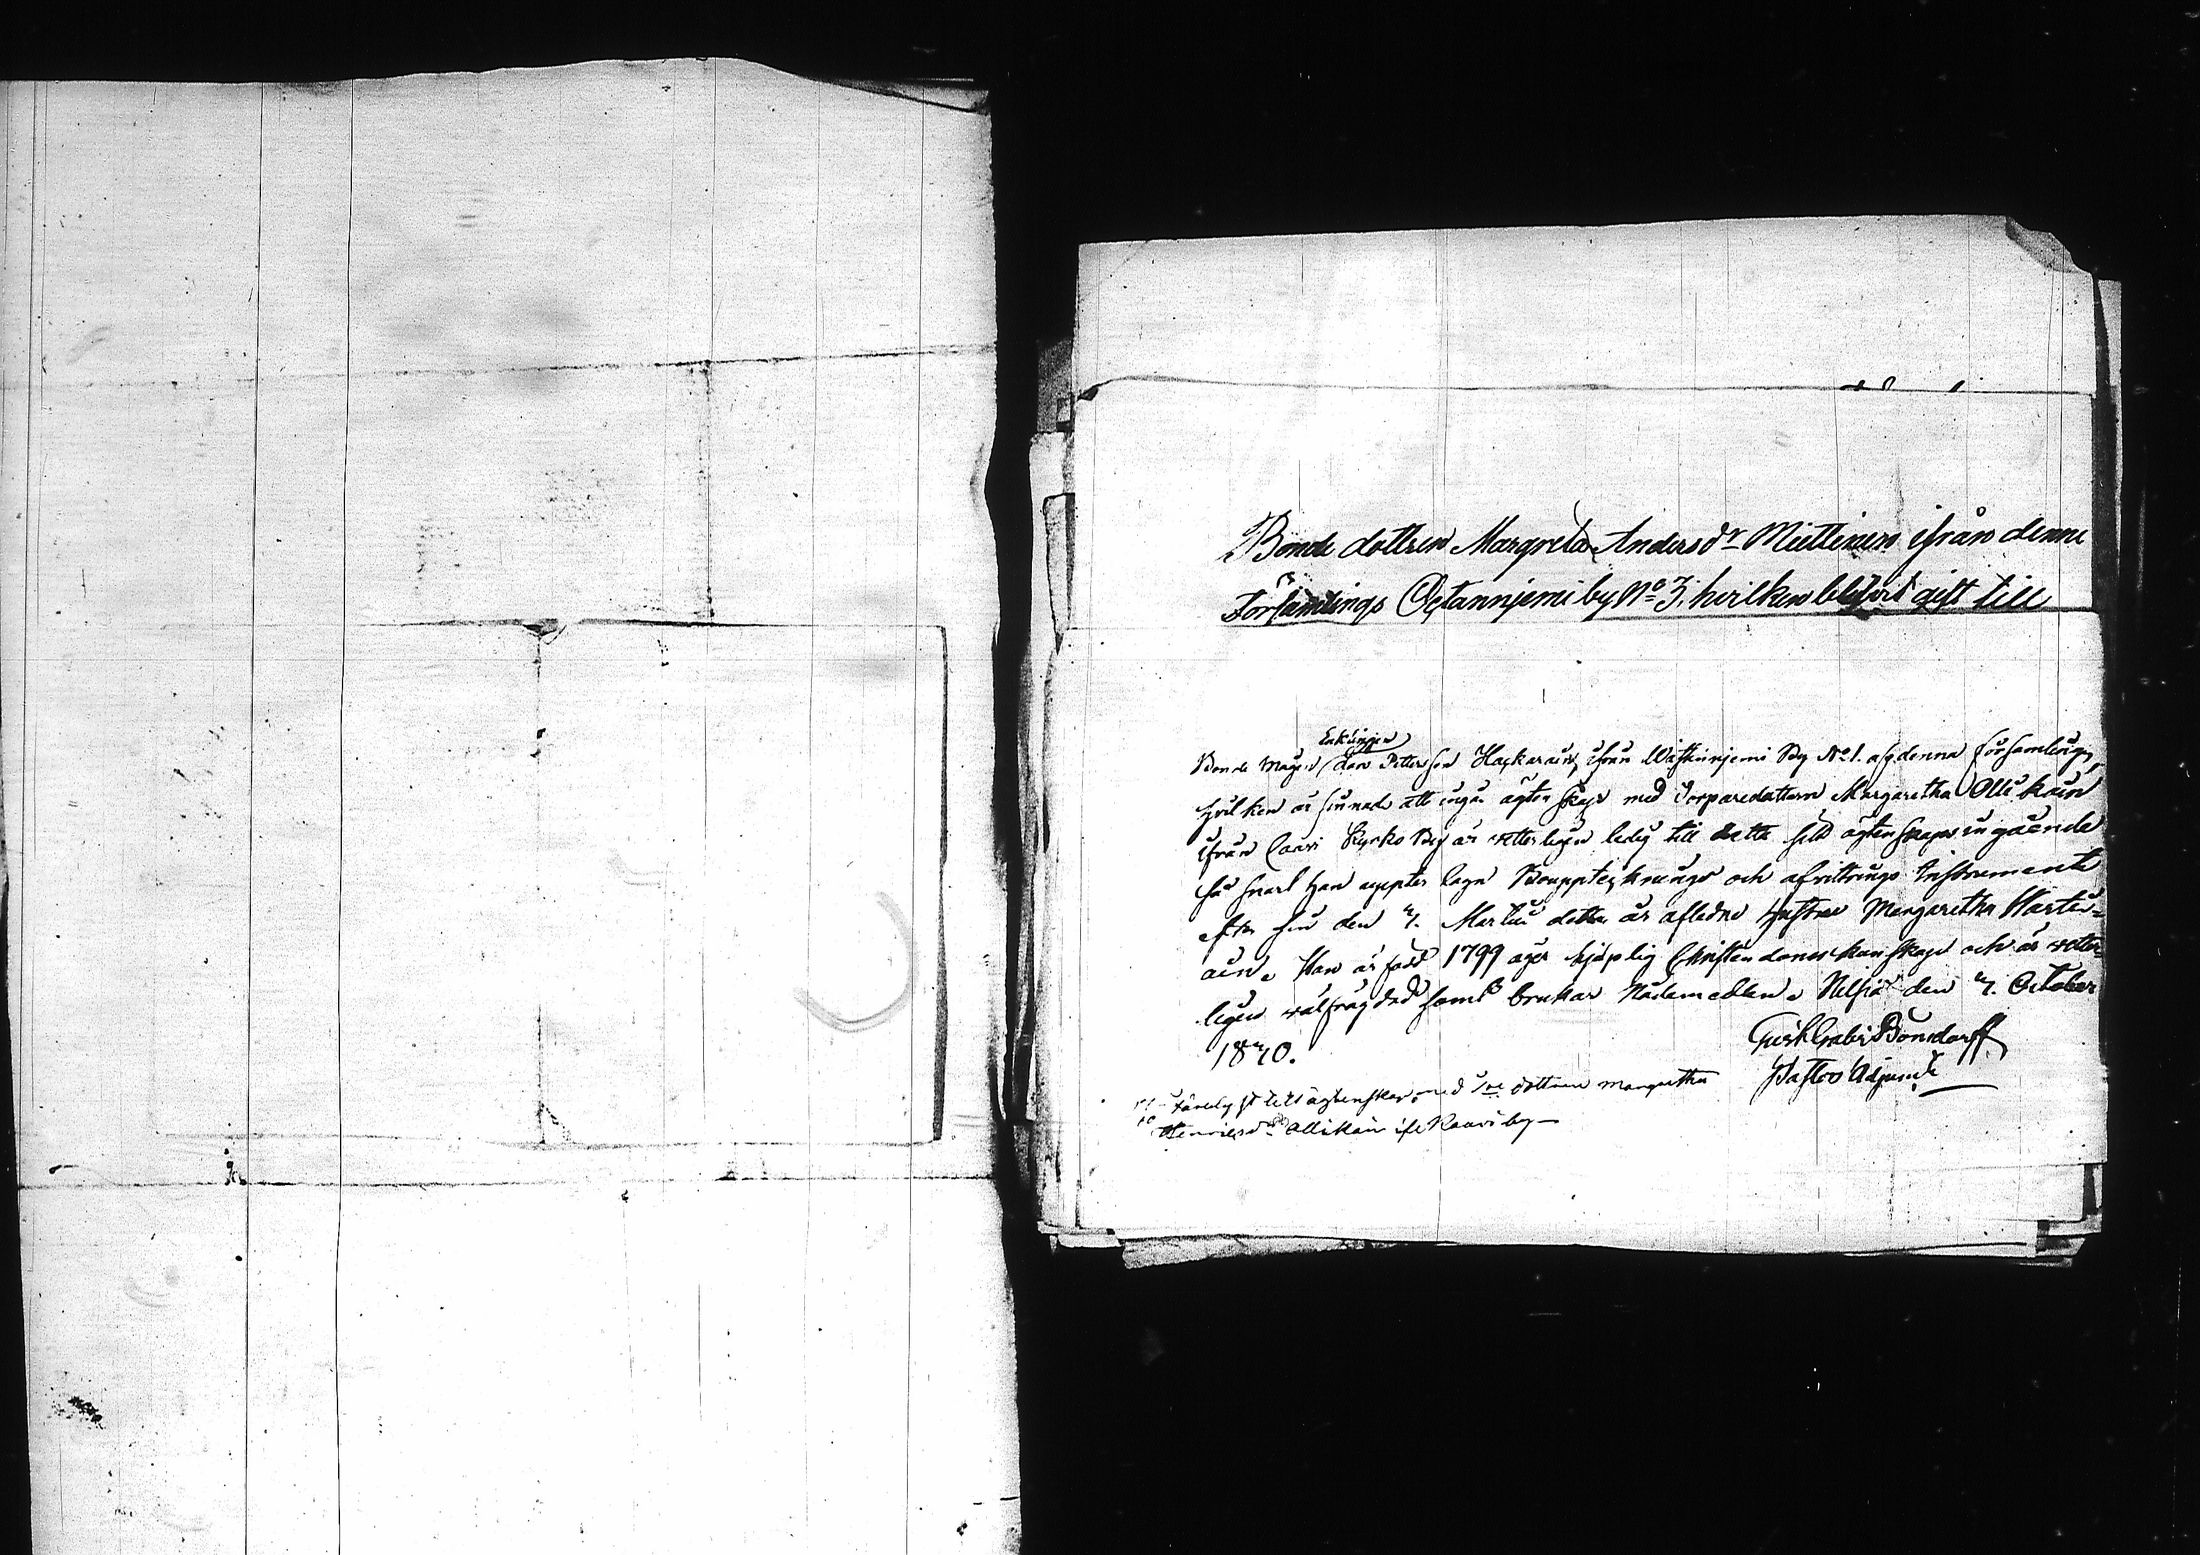 Bonde dottren Margreta Andersdr Miettinen ifrån denne
Församlings Östannjemi by No 3. hvilken blifvit gift till
Enklingen
Bonde Mågen Dan Pettersson Hackarain, ifrån Wästinnjemi By No 1. af denna församlingen,
hvilken är sinnad att ingå ägtenskap med Torparedottern Margaretha Ollikain
ifrån Kaavi Kyrko By är vetterligen ledig till dette sitt ägtenskaps ingående
så snart han uppter lagn Bouppteknings och afvittrings Instrumente
efter sin den 4. Martii detta år aflidne Hustru Margaretha Wartiu-
ain. Han är född 1799 äger hjelplig Christendomskunskap och är vetter-
ligen välfrägdad samt brukar Nådemedlen. Nilsiä den 4. October
1840.
Gust Gabr Bonsdorff
Pastors Adjunct
Ägtenskap med dottren Margretha
Henricsdr Ollikain ifr Kaavi by